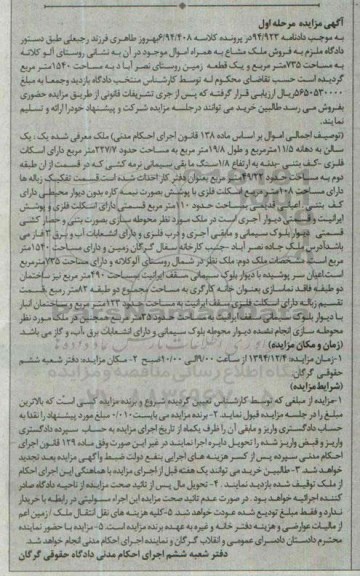 آگهی مزایده مرحله اول
به موجب دادنامه ۹۴/۹۲۳ در پرونده کلاسه ۶/۹۴/۴۰۸ بهروز طاهری فرزند رجبعلی طبق دستور
دادگاه ملزم به فروش ملک مشاع به همراه اموال موجود در آن به نشانی روستای آلوکلاته
به مساحت ۷۳۵ متر مربع و یک قطعه زمین روستای نصرآباد به مساحت ۱۵۴۰ متر مربع
گردیده است حسب تقاضای محکوم له توسط کارشناس منتخب دادگاه بازدید و جمعا به مبلغ
ریال ارزیابی قرار گرفته که پس از جری تشریفات قانونی از طریق مزایده حضوری
بفروش می رسد طالبین خرید می توانند درجلسه مزایده شرکت و پیشنهاد خود را ارائه و تسلیم
نمایند
(توصیف اجمالی اموال بر اساس ماده ۱۳۸ قانون اجرای احکام مدنی) ملک معرفی شده یک: یک
سالن به دهانه ۱۱/۵ مترمربع و طول ۱۹/۸ متر مربع به مساحت حدود ۲۲۷/۷ متر مربع دارای اسکلت
فلزی
دارای مساحت ۱۰۸ مترمربع اسکلت فلزی با پوشش بصورت نیمه کاره بدون دیوار محیطی دارای
مساحت حدود ۱۱۰ متر مربع قسمتی دارای اسکلت فلزی و پوشش
ایرانیت و قسمتی دیوار آجری است در ملک مورد نظر محوطه سازی بصورت بتنی و حصار کشی
قسمتی دیوار بلوک سیمانی و مابقی آجری و درب فلزی و دارای انشعابات آب و برق ۳ فاز می
باشد آدرس ملک جاده نصرآباد جنب کارخانه سفال گرگان زمین و دارای مساحت ۱۵۴۰ متر
مربع است مشخصات ملک دوم: ملک نظر در شمال روستای آلوکلاته و دارای مساحت ۷۳۵ مترمربع
است اعیان سرپوشیده با دیوار بلوک سیمانی سقف ایرانیت به مساحت ۴۹۰ متر مربع نیز ساختمان
دو طبقه فاقد نماسازی بعنوان خانه کارگری به مساحت مجموع دو طبقه ۸۲ متر مربع قسمت
با دیوار بلوک سیمانی سقف ایرانیت به مساحت حدود ۳۵ متر مربع همچنین در ملک مورد نظر
محوطه سازی انجام نشده دیوار محوطه بلوک سیمانی و دارای انشعابات برق، آب و گاز می باشد.
(زمان و مکان مزایده)
۱-زمان مزایده: ۱۳۹۴/۱۲/۴ از ساعت ۹/۰۰ الی ۱۰/۰۰ صبح ۲- مکان مزایده: دفتر شعبه ششم
حقوقی گرگان
(شرایط مزایده)
۱-مزایده از مبلغی که توسط کارشناس تعیین گردیده شروع و برنده مزایده کسی است که بالاترین
مبلغ را در جلسه مزایده قبول نماید ۲- برنده مزایده می بایست ۰/۰۱۰ مبلغ مورد پیشنهاد را نقدا به
حساب دادگستری واریز و مابقی آن را ظرف یکماه از تاریخ اجرای مزایده به حساب سپرده دادگستری
واریز و قبض واریز شده را تحویل دایره اجرا نمایند در غیر این صورت وفق ماده ۱۲۹ قانون اجرای
احکام مدنی سپرده پس از کسر هزینه های اجرایی بنفع دولت ضبط و آگهی مزایده بعد تجدید
خواهد شد. ۳- طالبین خرید می توانند یک هفته قبل از اجرای مزایده با هماهنگی این اجرای احکام
از ملک توقیف شده بازدید نمایند. ۴- تحویل مال پس از تائید صحت مزایده از ناحیه دادگاه صادر
کننده اجرائیه خواهد بود. در صورت عدم تائید صحت مزایده این اجراء مسولیتی در رابطه با خریدار
ندارد و فقط مبلغ تودیع شده عودت خواهد شد. ۵-کلیه هزینه های نقل انتقال ملک / زمین اعم
از مالیات عوارضی و هزینه دفترخانه و غیره به عهده برنده مزایده است. ۵- مزایده با حضور نماینده
محترم دادستان دادسرای عمومی و انقلاب گرگان و نماینده اجرای احکام مدنی انجام خواهد شد.
دفتر شعبه ششم اجرای احکام مدنی دادگاه حقوقی گرگان